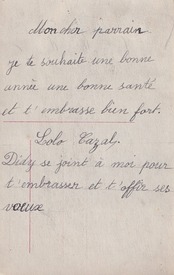 Mon cher parrain
je te souhaite une bonne
année une bonne santé
et t'embrasse bien fort.
Lolo Cazal,
Didy se joint à moi pour
t'embrasser et t'offir ses
voeux